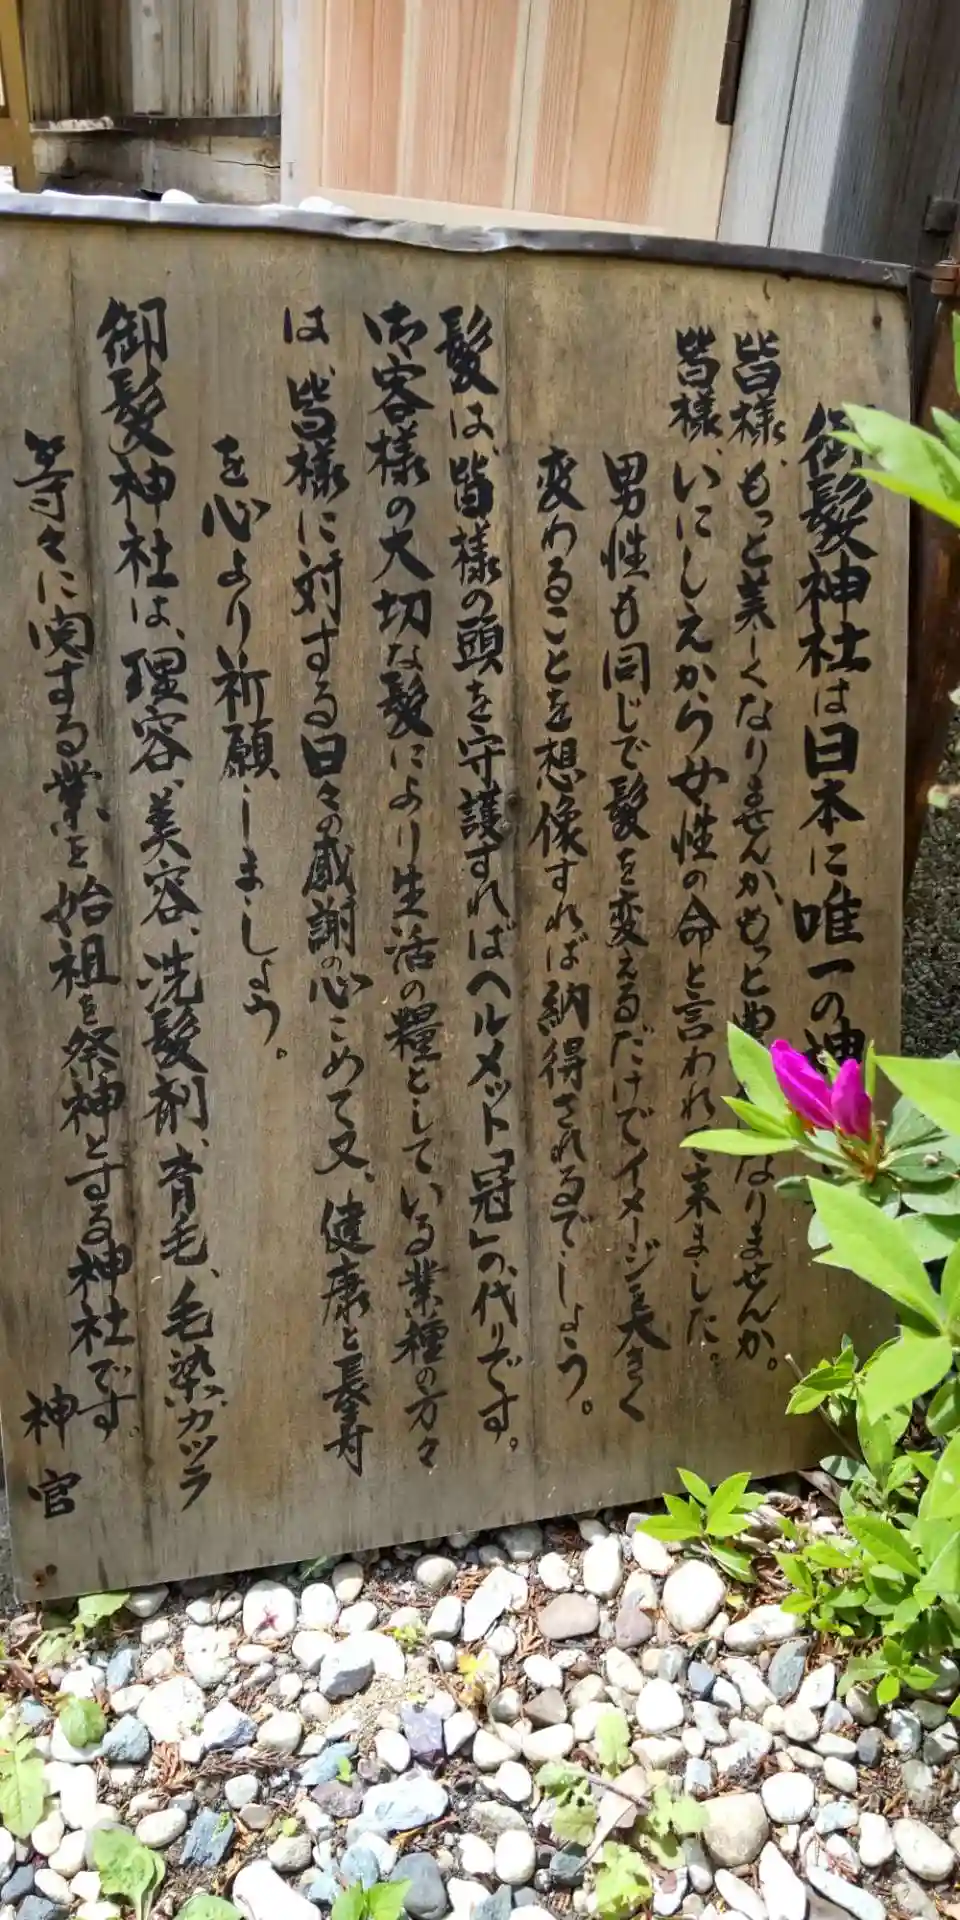 御髪神社は日本に唯一の神
皆様、もっと美しくなりませんか、もっと なりませんか。
皆様、いにしえから女性の命と言われて来ました。
男性も同じで髪を変えるだけでイメージを大きく
変わることを想像すれば納得されるでしょう。
髪は、皆様の頭を守護すればヘルメット「冠」の代りです。
御客様の大切な髪により生活の糧としている業種の方々
は、皆様に対する日々の感謝の心こめて又、健康と長寿
を心より祈願しましょう。
御髪神社は、理容、美容、洗髪剤、育毛、毛染、カツラ
等々に関する業を始祖を祭神とする神社です。
神官